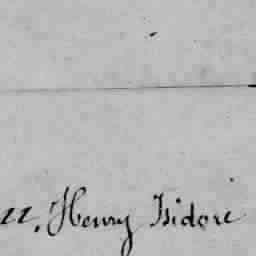 22, Henry Isidore